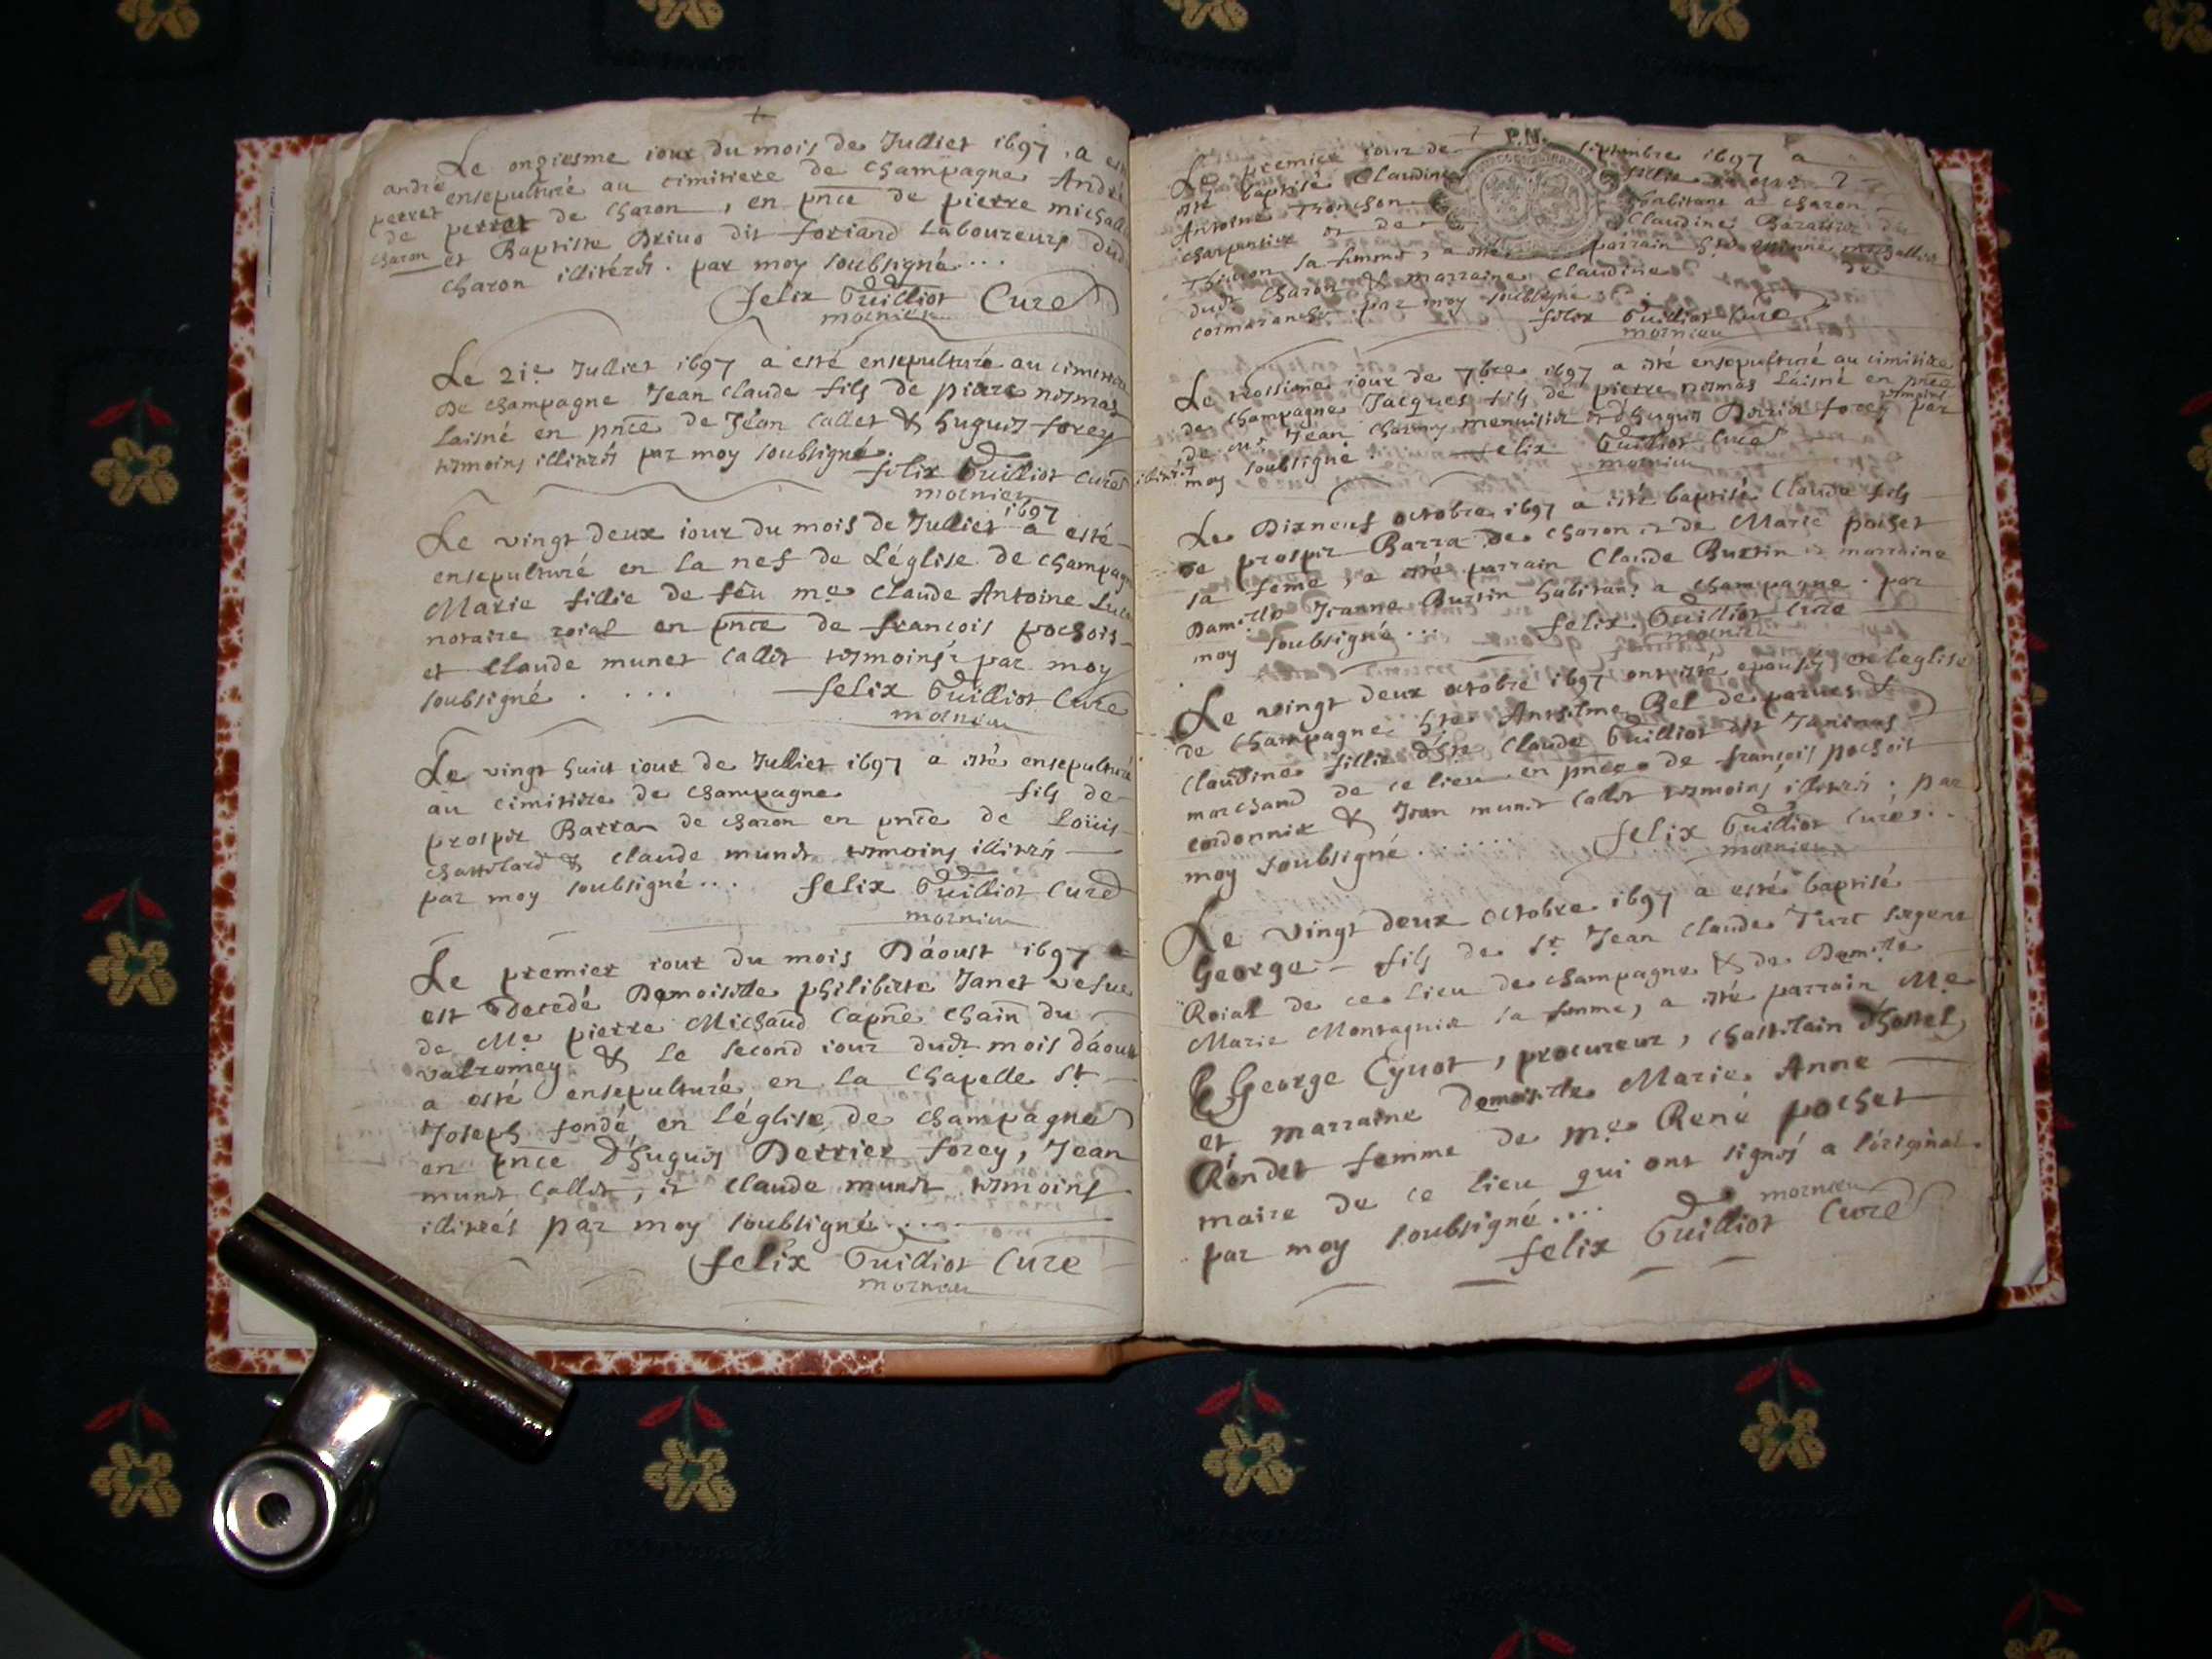 Le onziesme iour du mois de Julliet 1697, a esté
andré perret de charon
ensepulturé au cimitiere de champagne André
perret de charon, en pnce de pierre michalle
et Baptiste Drivo dit foriand Laboureurs dud
charon illiterés. par moy soubsigné...
felix Guilliot Curé
mornieu
Le 21e Julliet 1697 a esté ensepulturé au cimitiere
De champagne Jean claude fils de pierre
laisné en pnce de Jean Callet & huguis forey
tesmoins illiterés par moy soubsigné.
felix Guilliot Curé
mornieu
Le vingt deux iour du mois de Julliet 1697 a esté
ensepulturé en la nef de Léglise de champagne
Marie fillie de feu me claude Antoine
notaire roial en pnce de francois pochois
et claude munet callet tesmoins par moy
soubsigné ....
felix Guilliot Curé
mornieu
Le vingt huict iour de Julliet 1697 a esté ensepulturé
au cimitiere de champagne fils de
prosper Barra de charon en pnce de Loüis
chastelard & claude munet tesmoins illiterés
par moy soubsigné... felix Guilliot Curé
mornieu
Le premier iour du mois Dáoust 1697
est decedé Demoiselle philiberte Janet vefue
de Me pierre Michaud Capne Chain du
valromey & le second iour dudt mois dáoust
a esté ensepulturé en la Chapelle St
Joseph fondé en Léglise de champagne
en pnce d'huguis Derrier forey, Jean
munet callet, et claude munet tesmoins
illiterés par moy soubsigné....
felix Guilliot Cure
mornieu
P.N.
Le premier iour de septembre 1697 a
esté baptisé Claudine fillie
Antoine Tronchon habitant a charon
charpentier et de Claudine
sa femme, a esté parrain
dudt charon & marraine Claudine de
par moy soubsigné
felix Guilliot Curé
mornieu
Le troisieme iour de 7bre 1697 a esté ensepulturé au cimitiere
de champagne Jacques fils de pierre Láisné en pnce
de me Jean charny menuisier et d'huguis Derrier forey tesmoins par
illiterés moy soubsigné. felix Guilliot Curé
mornieu
Le Dixneuf octobre 1697 a esté baptisé Claude fils
de prosper Barra de charon et de Marie pochet
sa feme, a esté parrain Claude Burtin et marraine
Damlle Jeanne Burtin habitant a champagne. par
moy soubsigné... felix Guilliot Curé
mornieu
Le vingt deux octobre 1697 ont esté epousés en leglise
de champagne hte Anthelme Bel de &
Claudine fillie d'hte Claude Guilliot dit Janinus
marchand de ce lieu en pnce de francois pochois
cordonnier & Jean munet callet tesmoins illiterés. par
moy soubsigné ...... felix Guilliot Curé...
mornieu
Le vingt deux octobre 1697 a esté baptisé
George fils de Sr Jean claude Turc sergent
Roial de ce lieu de champagne & de Damlle
Marie Montagnier sa femme, a esté parrain Me
George Cyvot, procureur, chastelain d'hostel,
et marraine Demoiselle Marie Anne
Rondet femme de me René pochet
maire de ce lieu qui ont signés a l'original.
par moy soubsigné....
felix Guilliot Curé
mornieu